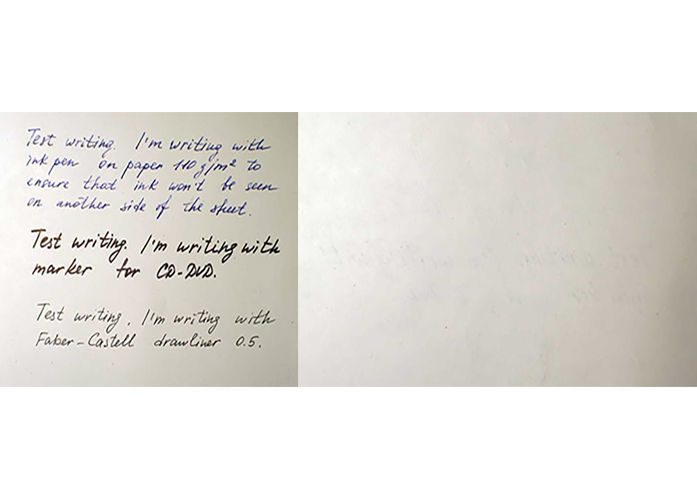 Test writing. I'm writing with
ink pen on paper 110 g/m² to
ensure that ink won't be seen
on another side of the sheet.
Test writing. I'm writing with
marker for CD-DVD.
Test writing. I'm writing with
Faber-Castell drawliner 0.5.